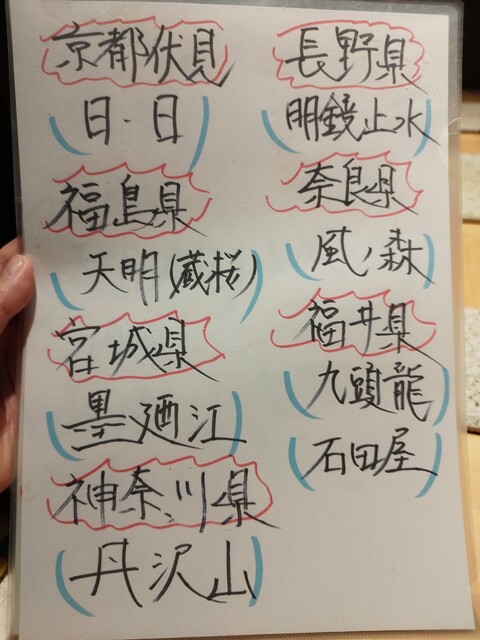 京都伏見
日・日
福島県
天明(蔵桜)
宮城県
墨廼江
神奈川県
丹沢山
長野県
明鏡止水
奈良県
風ノ森
福井県
九頭龍
石田屋